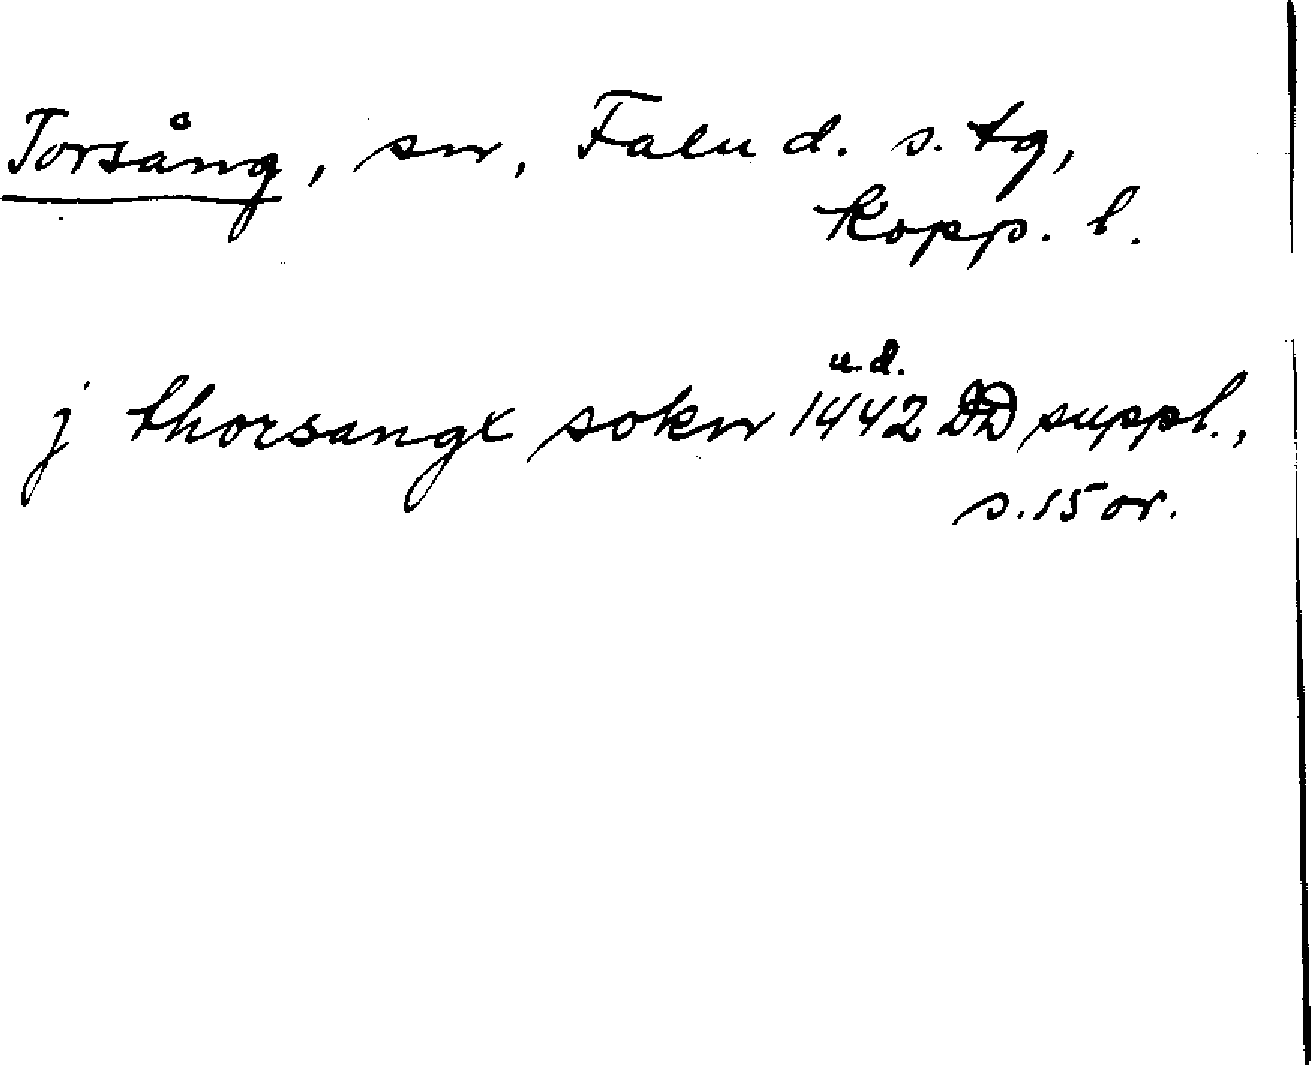 Torsång, sn, Falu d. s. tg,
Kopp. l.
u.d.
j thorsange sokn 1442 DD suppl.,
s. 15 or.